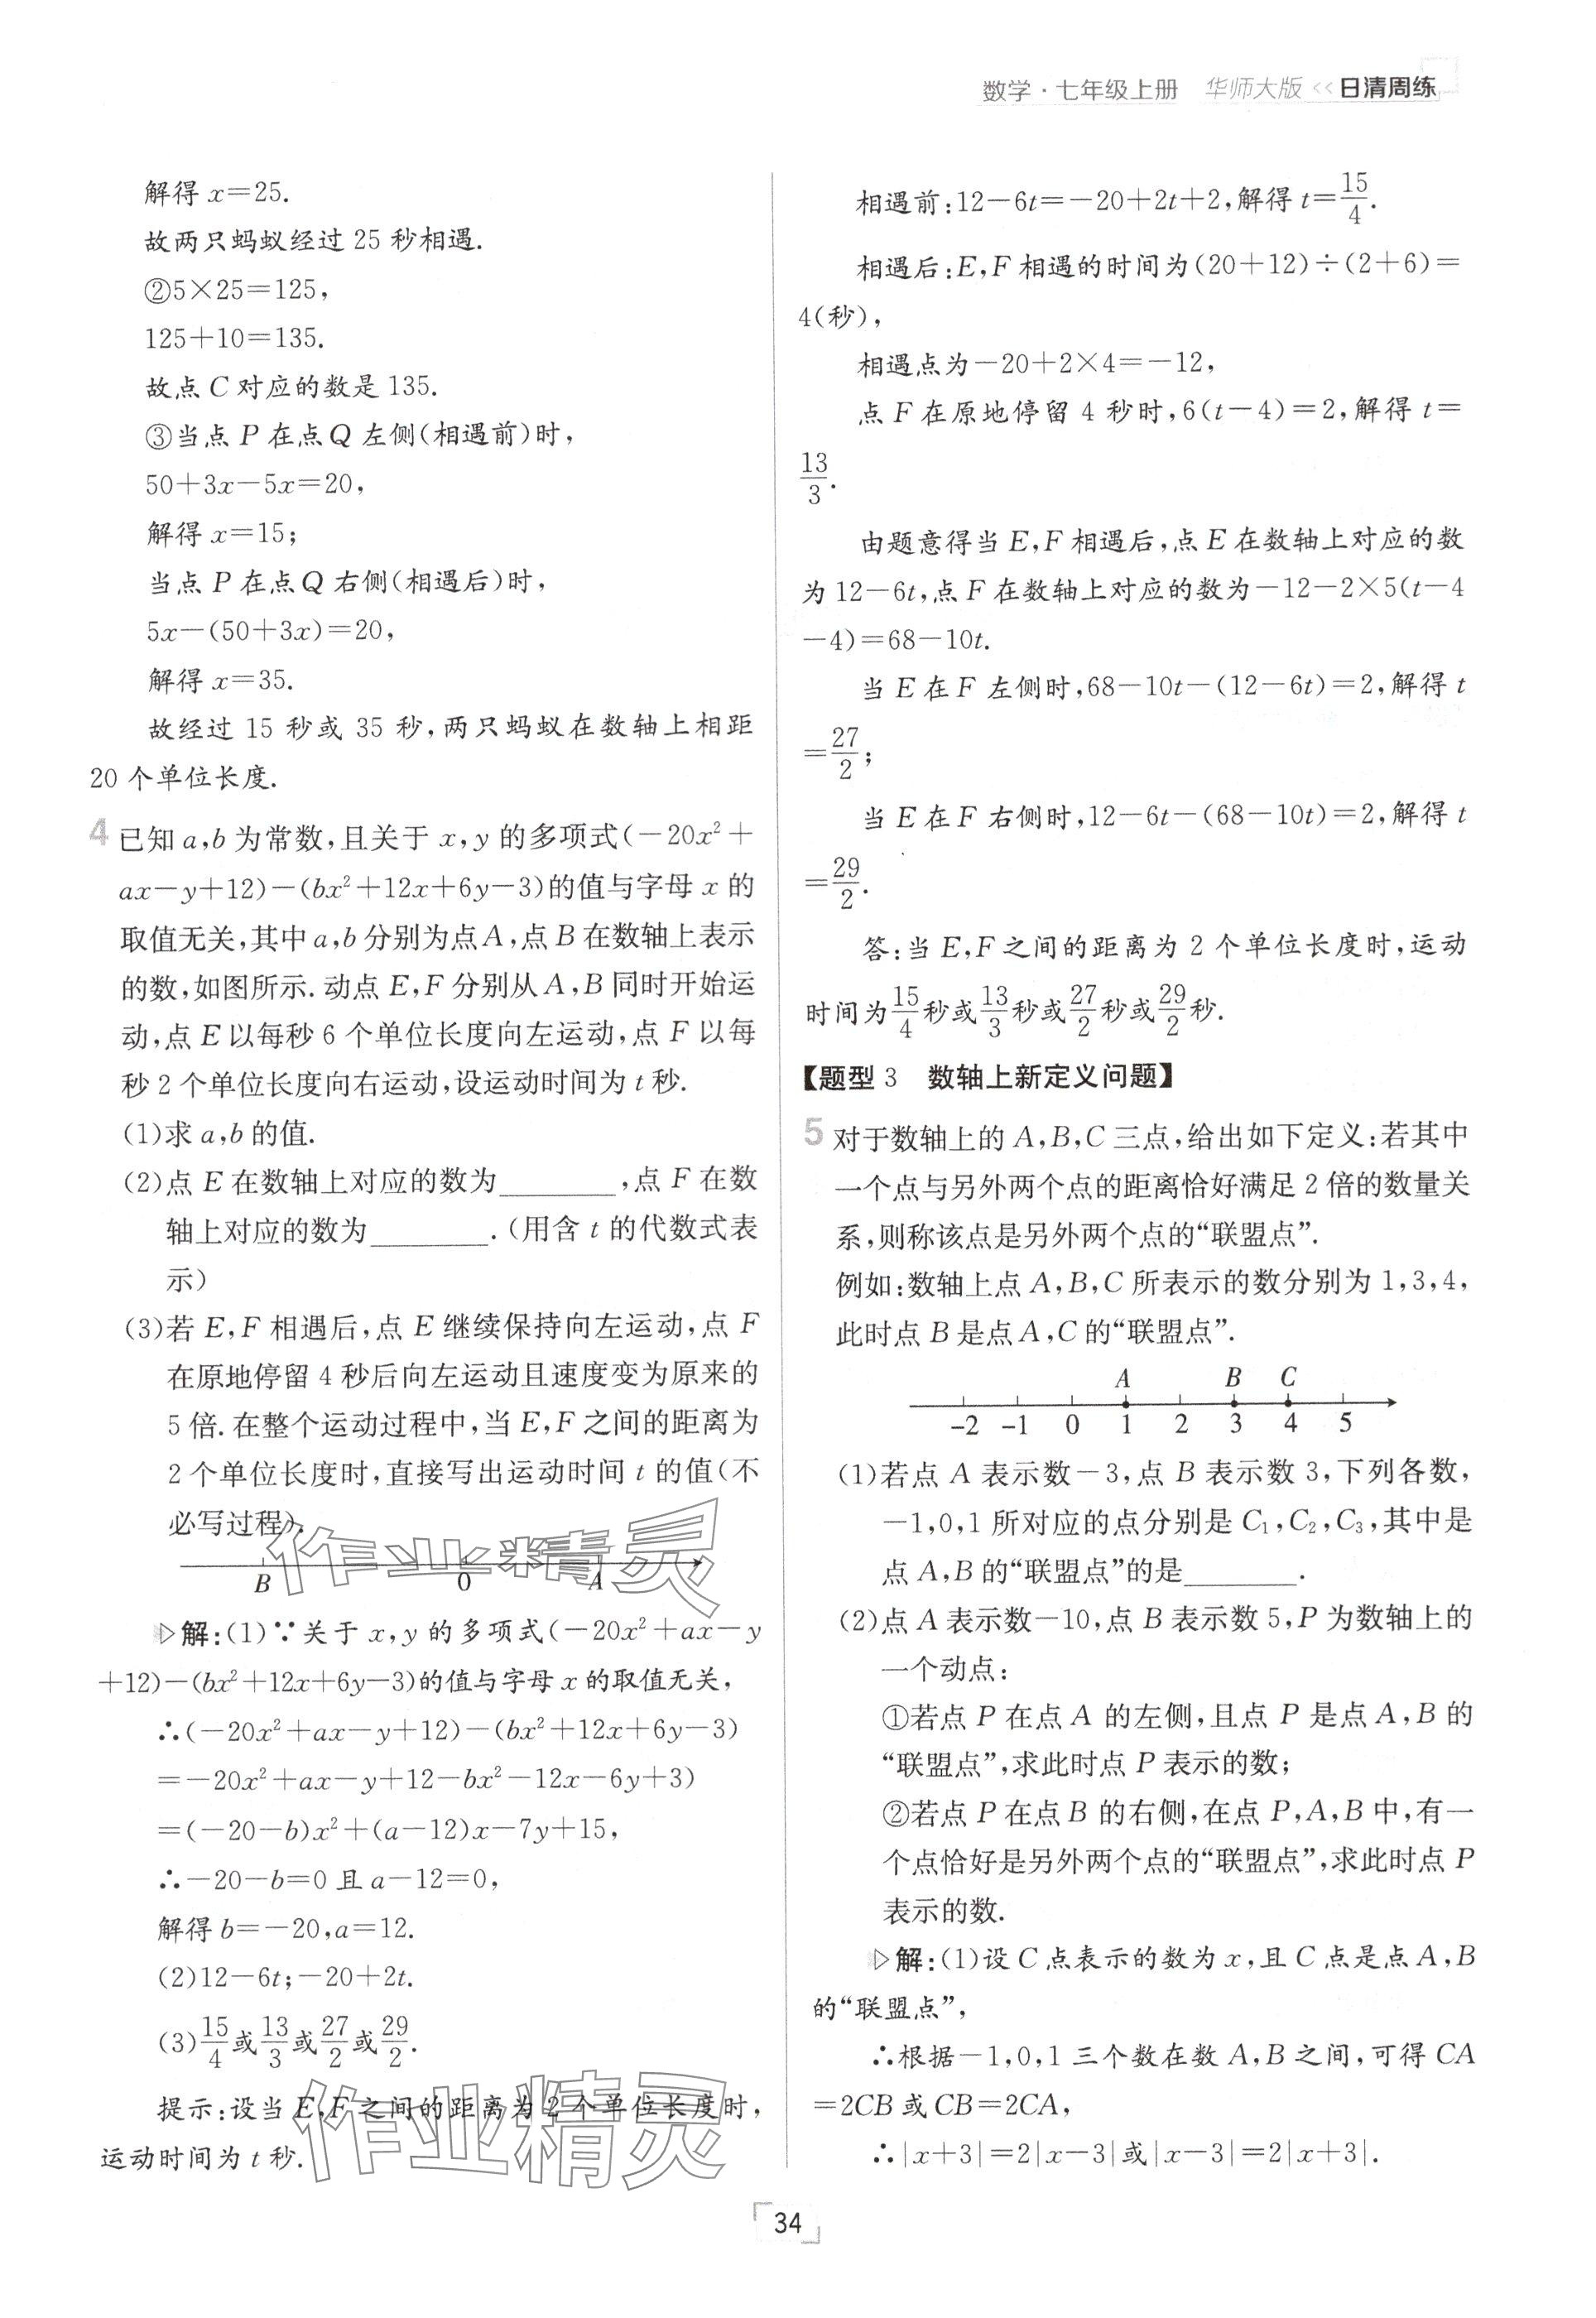 数学·七年级上册 华师大版 << 日清周练
解得 x=25.
故两只蚂蚁经过 25 秒相遇.
②5×25=125,
125+10=135.
故点 C 对应的数是 135.
③当点 P 在点 Q 左侧(相遇前)时,
50+3x-5x=20,
解得 x=15;
当点 P 在点 Q 右侧(相遇后)时,
5x-(50+3x)=20,
解得 x=35.
故经过 15 秒或 35 秒,两只蚂蚁在数轴上相距
20 个单位长度.
4 已知 a,b 为常数,且关于 x,y 的多项式(-20x²+
ax-y+12)-(bx²+12x+6y-3)的值与字母 x 的
取值无关,其中 a,b 分别为点 A,点 B 在数轴上表示
的数,如图所示.动点 E,F 分别从 A,B 同时开始运
动,点 E 以每秒 6 个单位长度向左运动,点 F 以每
秒 2 个单位长度向右运动,设运动时间为 t 秒.
(1)求 a,b 的值.
(2)点 E 在数轴上对应的数为________,点 F 在数
轴上对应的数为________.(用含 t 的代数式表
示)
(3)若 E,F 相遇后,点 E 继续保持向左运动,点 F
在原地停留 4 秒后向左运动且速度变为原来的
5 倍.在整个运动过程中,当 E,F 之间的距离为
2 个单位长度时,直接写出运动时间 t 的值(不
必写过程).
B 0 A
作业精灵
▷解:(1)∵关于 x,y 的多项式(-20x²+ax-y
+12)-(bx²+12x+6y-3)的值与字母 x 的取值无关,
∴(-20x²+ax-y+12)-(bx²+12x+6y-3)
=-20x²+ax-y+12-bx²-12x-6y+3)
=(-20-b)x²+(a-12)x-7y+15,
∴-20-b=0 且 a-12=0,
解得 b=-20,a=12.
(2)12-6t;-20+2t.
(3)15/4或13/3或27/2或29/2.
提示:设当 E,F 之间的距离为 2 个单位长度时,
运动时间为 t 秒.
作业精灵
相遇前:12-6t=-20+2t+2,解得 t=15/4.
相遇后:E,F 相遇的时间为(20+12)÷(2+6)=
4(秒),
相遇点为-20+2×4=-12,
点 F 在原地停留 4 秒时,6(t-4)=2,解得 t=
13/3.
由题意得当 E,F 相遇后,点 E 在数轴上对应的数
为 12-6t,点 F 在数轴上对应的数为-12-2×5(t-4
-4)=68-10t.
当 E 在 F 左侧时,68-10t-(12-6t)=2,解得 t
=27/2;
当 E 在 F 右侧时,12-6t-(68-10t)=2,解得 t
=29/2.
答:当 E,F 之间的距离为 2 个单位长度时,运动
时间为15/4秒或13/3秒或27/2秒或29/2秒.
【题型 3 数轴上新定义问题】
5 对于数轴上的 A,B,C 三点,给出如下定义:若其中
一个点与另外两个点的距离恰好满足 2 倍的数量关
系,则称该点是另外两个点的“联盟点”.
例如:数轴上点 A,B,C 所表示的数分别为 1,3,4,
此时点 B 是点 A,C 的“联盟点”.
A B C
-2 -1 0 1 2 3 4 5
(1)若点 A 表示数-3,点 B 表示数 3,下列各数,
-1,0,1 所对应的点分别是 C₁,C₂,C₃,其中是
点 A,B 的“联盟点”的是________.
(2)点 A 表示数-10,点 B 表示数 5,P 为数轴上的
一个动点:
①若点 P 在点 A 的左侧,且点 P 是点 A,B 的
“联盟点”,求此时点 P 表示的数;
②若点 P 在点 B 的右侧,在点 P,A,B 中,有一
个点恰好是另外两个点的“联盟点”,求此时点 P
表示的数.
▷解:(1)设 C 点表示的数为 x,且 C 点是点 A,B
的“联盟点”,
∴根据-1,0,1 三个数在数 A,B 之间,可得 CA
=2CB 或 CB=2CA,
∴|x+3|=2|x-3|或|x-3|=2|x+3|.
34